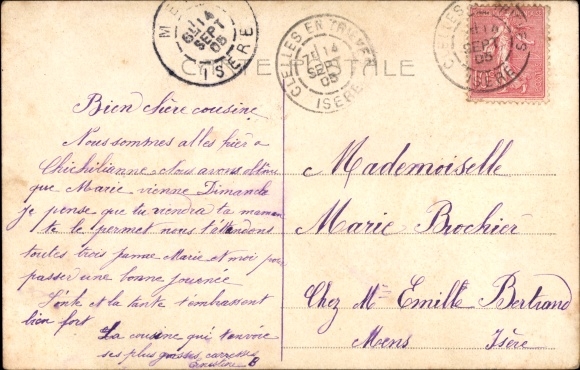 CARTE POSTALE
CLELLES EN TRIEVES
14
SEPT
05
ISÈRE
Bien chère cousine
Nous sommes allés hier a
Chichilianne Nous avons obtenu
que Marie vienne Dimanche
je pense que tu viendra ta maman
te le permet nous t'attendons
toutes trois Marie et moi pour
passer une bonne journée
et la tante t'embrassent
bien fort
La cousine qui t'envoie
ses plus grosses caresses
B
Mademoiselle
Marie Brochier
Chez Mr Emille Bertrand
Mens Isère